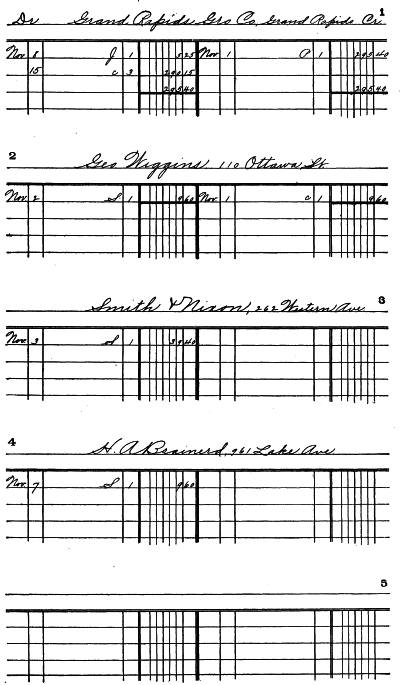 1
Dr Grand Rapids Gro Co, Grand Rapids Cr.
Nov 8 J 1 5 25 Nov 1 P 1 295 40
15 C 3 290 15
295 40 295 40
2
Geo Wiggins, 110 Ottawa St.
Nov 2 S 1 9 60 Nov 1 C 1 9 60
Smith & Nixon, 262 Western Ave 3
Nov 3 S 1 39 40
4
H. A Brainerd, 961 Lake Ave
Nov 7 S 1 9 60
5